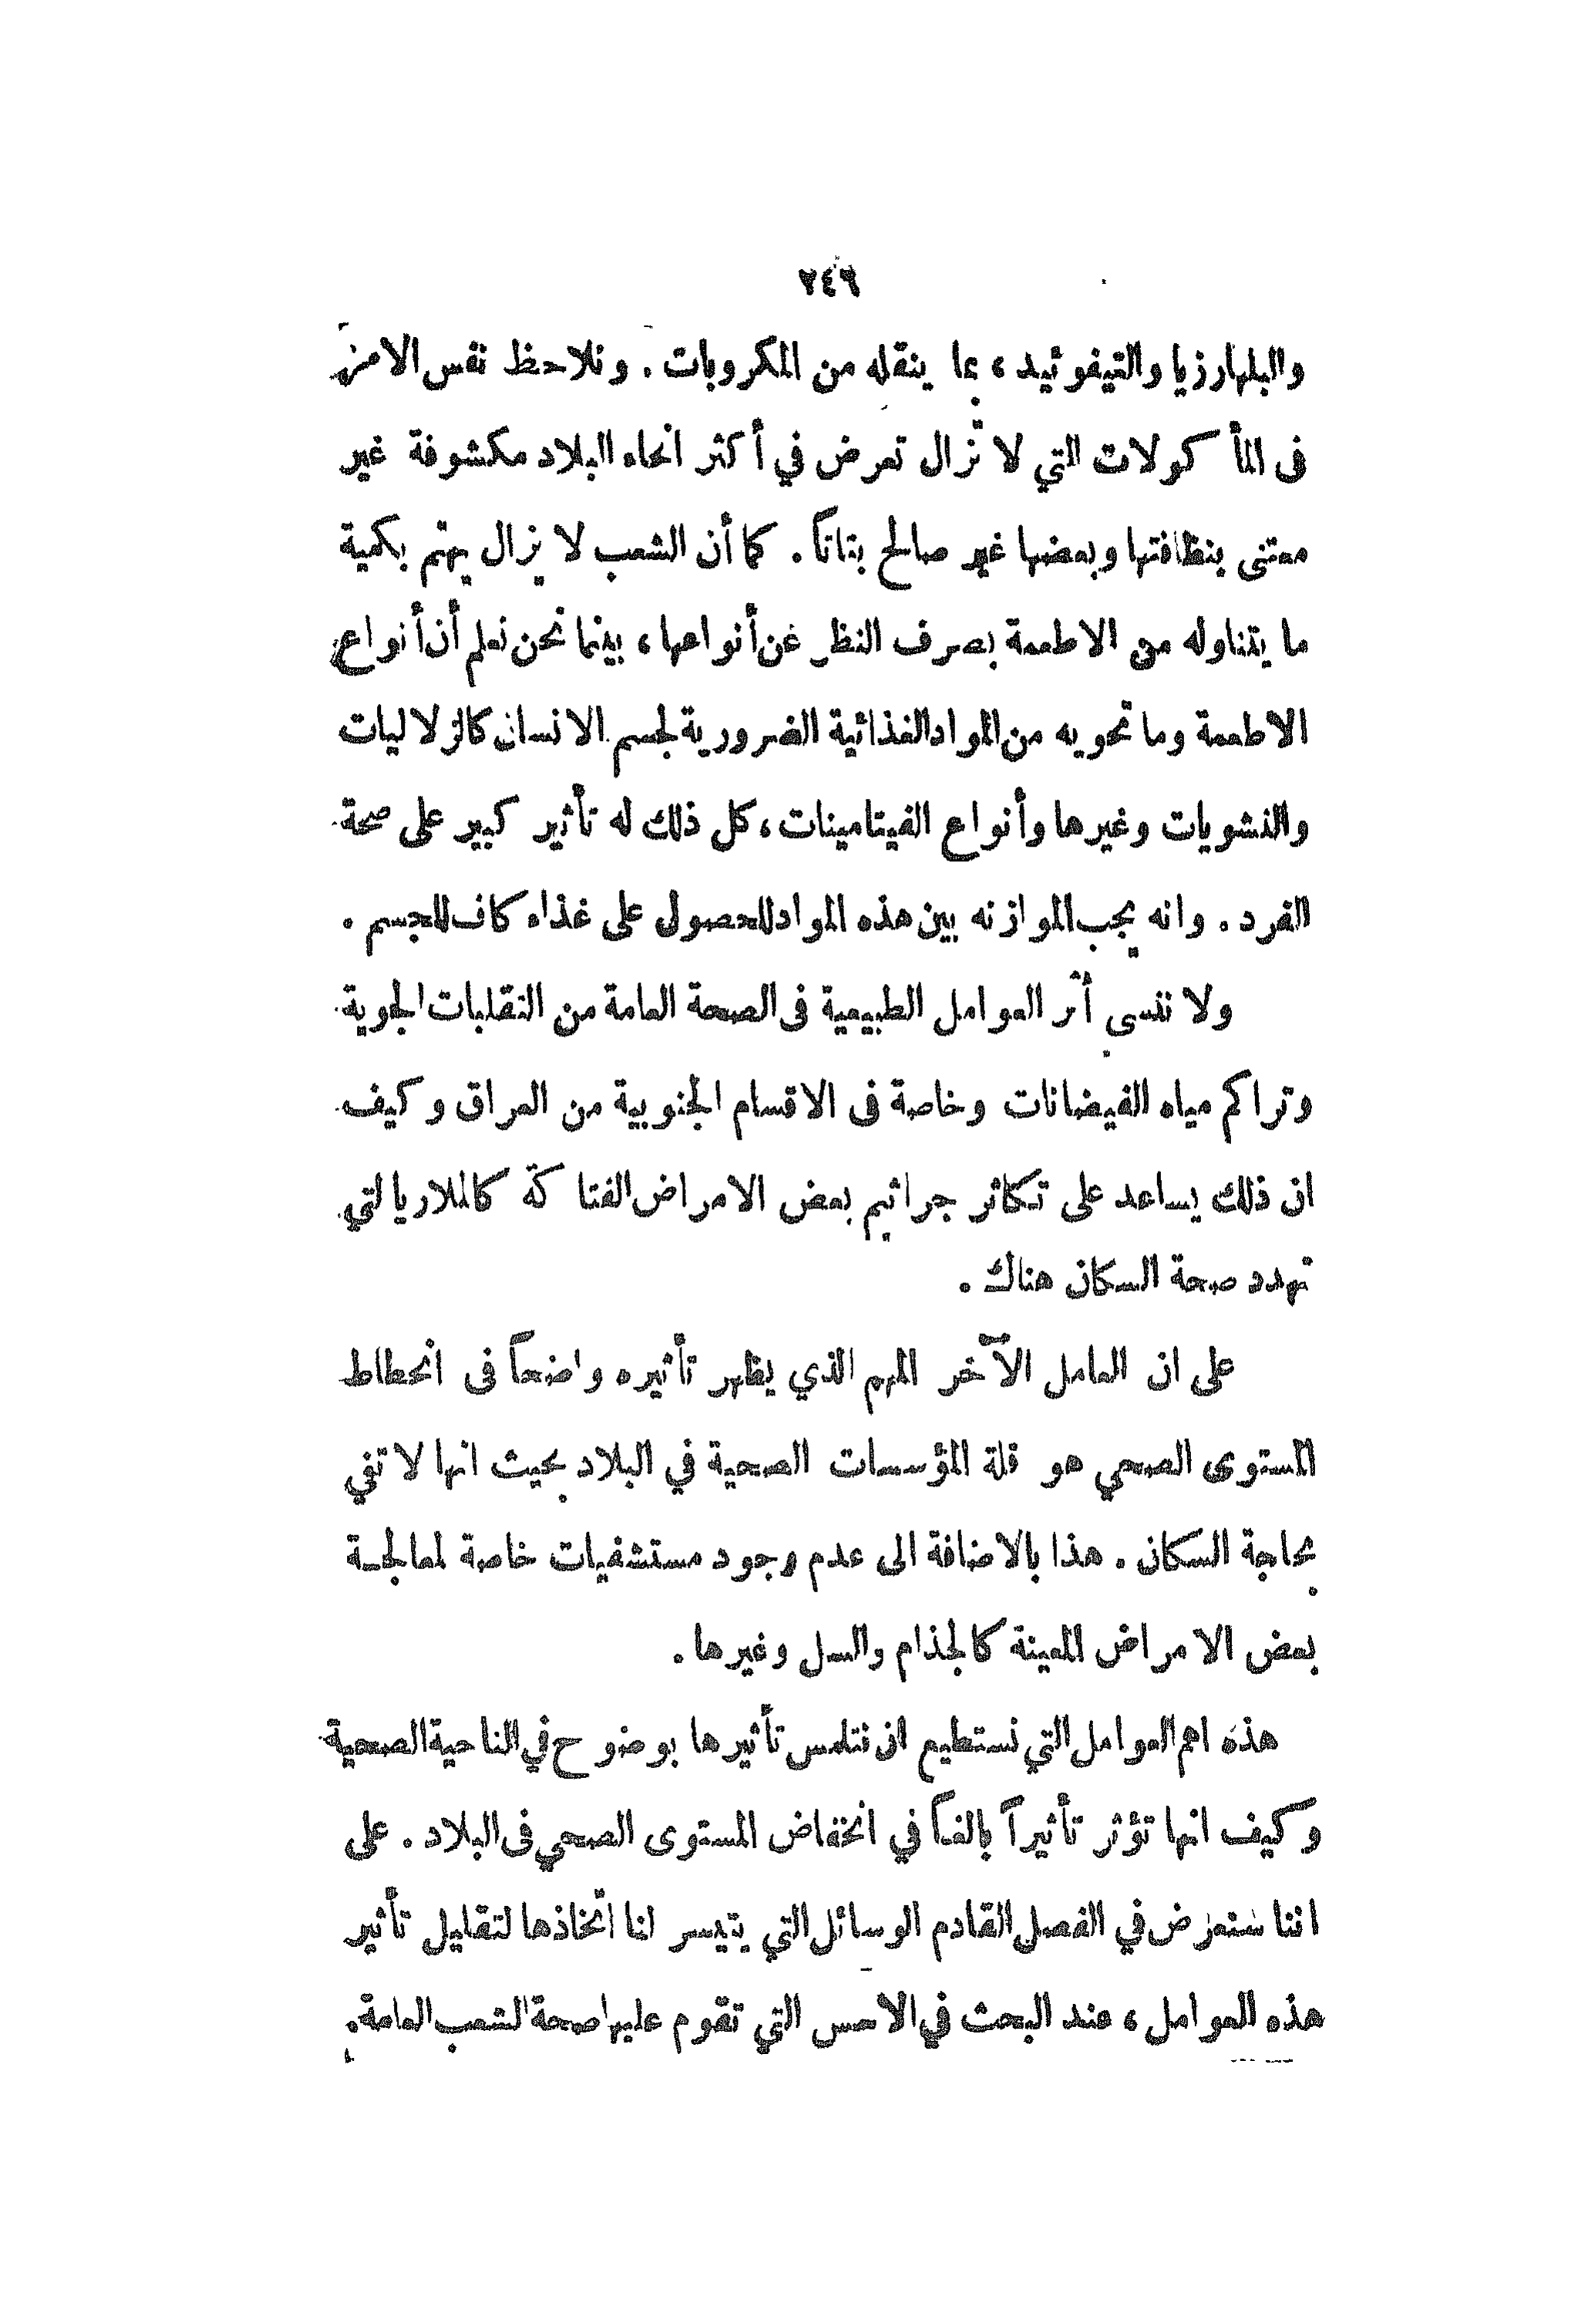 ٢٤٦
والبلهارزيا والتيفوئيد ، بما ينقله من المكروبات . ونلاحظ نفس الامر
فى المأكولات التي لا تزال تعرض في أكثر انحاء البلاد مكشوفة غير
معتنى بنظافتها وبعضها غير صالح بتاتاً . كما أن الشعب لا يزال يهتم بكمية
ما يتناوله من الاطعمة بصرف النظر عن أنواعها ، بينما نحن نعلم أن أنواع
الاطعمة وما تحويه من المواد الغذائية الضرورية لجسم الانسان كالزلاليات
والنشويات وغيرها وأنواع الفيتامينات ، كل ذلك له تأثير كبير على صحة
الفرد . وانه يجب الموازنه بين هذه المواد للحصول على غذاء كاف للجسم .
ولا ننسى أثر العوامل الطبيعية فى الصحة العامة من التقلبات الجوية
وتراكم مياه الفيضانات وخاصة فى الاقسام الجنوبية من العراق وكيف
ان ذلك يساعد على تكاثر جراثيم بعض الامراض الفتاكة كالملاريا التي
تهدد صحة السكان هناك .
على ان العامل الآخر المهم الذي يظهر تأثيره واضحاً فى انحطاط
المستوى الصحي هو قلة المؤسسات الصحية في البلاد بحيث انها لا تفي
بحاجة السكان . هذا بالاضافة الى عدم وجود مستشفيات خاصة لمعالجـة
بعض الامراض المعينة كالجذام والسل وغيرها .
هذه اهم العوامل التي نستطيع ان نتلمس تأثيرها بوضوح في الناحية الصحية
وكيف انها تؤثر تأثيراً بالغاً في انخفاض المستوى الصحي فى البلاد . على
اننا سنعرض في الفصل القادم الوسائل التي يتيسر لنا اتخاذها لتقليل تأثير
هذه العوامل ، عند البحث في الاسس التي تقوم عليها صحة الشعب العامة .